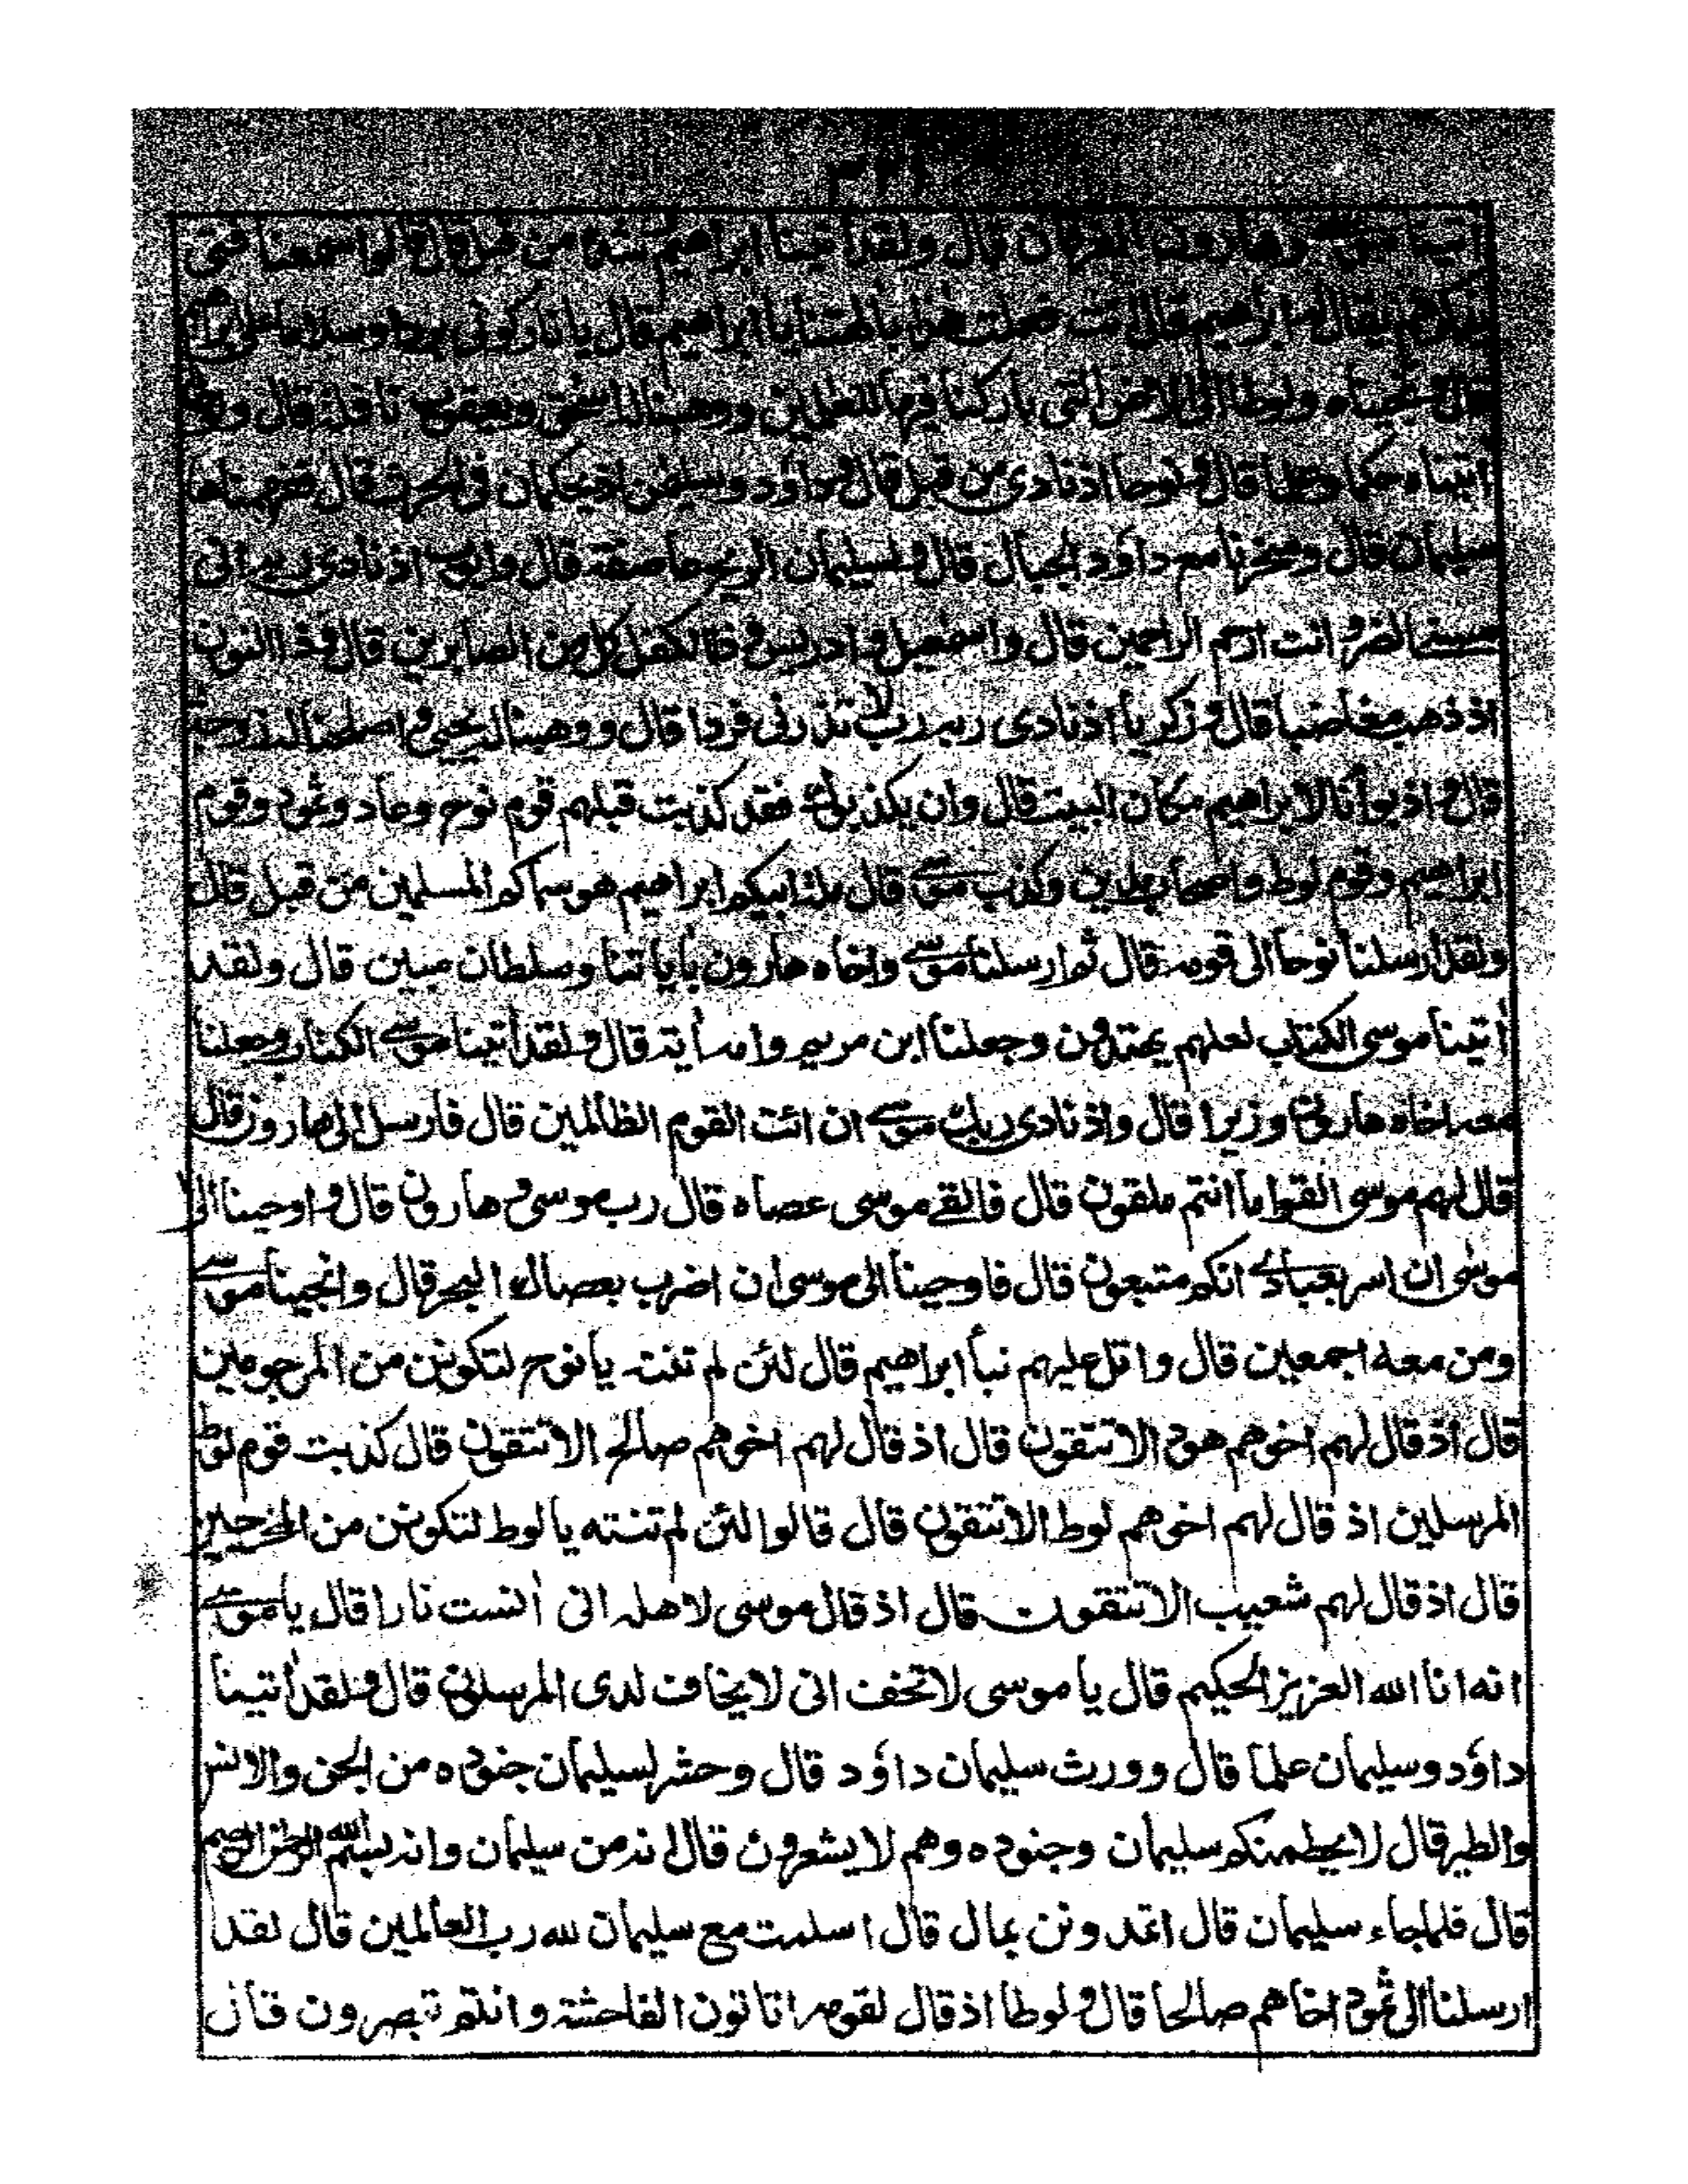 اتينا موسى وهارون الفرقان قال ولقد اتينا ابراهيم رشده من قبل قال قالوا سمعنا فتى
يذكرهم يقال له ابراهيم قال أانت فعلت هذا بالهتنا يا ابراهيم قال يا نار كونى بردا وسلاما على ابراهيم
قال ونجيناه ولوطا الى الارض التى باركنا فيها للعالمين ووهبنا له اسحق ويعقوب نافلة قال ولوطا
اتيناه حكما وعلما قال ونوحا اذ نادى من قبل قال وداود وسليمن اذ يحكمان فى الحرث قال ففهمناها
سليمان قال وسخرنا مع داود الجبال قال ولسليمان الريح عاصفة قال وايوب اذ نادى ربه انى
مسنى الضر وانت ارحم الراحمين قال واسمعيل وادريس وذا الكفل كل من الصابرين قال وذا النون
اذ ذهب مغاضبا قال وزكريا اذ نادى ربه رب لا تذرنى فردا قال ووهبنا له يحيى واصلحنا له زوجه
قال واذ بوأنا لابراهيم مكان البيت قال وان يكذبوك فقد كذبت قبلهم قوم نوح وعاد وثمود وقوم
ابراهيم وقوم لوط واصحاب مدين وكذب موسى قال ملة ابيكم ابراهيم هو سماكم المسلمين من قبل قال
ولقد ارسلنا نوحا الى قومه قال ثم ارسلنا موسى واخاه هارون بأياتنا وسلطان مبين قال ولقد
أتينا موسى الكتاب لعلهم يهتدون وجعلنا ابن مريم وامه أية قال ولقد أتينا موسى الكتاب وجعلنا
معه اخاه هارون وزيرا قال واذ نادى ربك موسى ان ائت القوم الظالمين قال فأرسل الى هارون قال
قال لهم موسى القوا ما انتم ملقون قال فالقى موسى عصاه قال رب موسى وهارون قال واوحينا الى
موسى ان اسر بعبادى انكم متبعون قال فاوحينا الى موسى ان اضرب بعصاك البحر قال وانجينا موسى
ومن معه اجمعين قال واتل عليهم نبأ ابراهيم قال لئن لم تنته يا نوح لتكونن من المرجومين
قال اذ قال لهم اخوهم هود الا تتقون قال اذ قال لهم اخوهم صالح الا تتقون قال كذبت قوم لوط
المرسلين اذ قال لهم اخوهم لوط الا تتقون قال قالوا لئن لم تنته يا لوط لتكونن من المخرجين
قال اذ قال لهم شعيب الا تتقون قال اذ قال موسى لاهله انى أنست نارا قال يا موسى
انه انا الله العزيز الحكيم قال يا موسى لا تخف انى لا يخاف لدى المرسلون قال ولقد أتينا
داود وسليمان علما قال وورث سليمان داود قال وحشر لسليمان جنوده من الجن والانس
والطير قال لا يحطمنكم سليمان وجنوده وهم لا يشعرون قال انه من سليمان وانه بسم الله الرحمن الرحيم
قال فلما جاء سليمان قال اتمدونن بمال قال اسلمت مع سليمان لله رب العالمين قال لقد
ارسلنا الى ثمود اخاهم صالحا قال ولوطا اذ قال لقومه اتاتون الفاحشة وانتم تبصرون قال